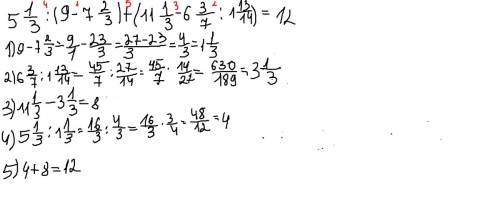 4 1 5 3 2
5 1/3 : (9 - 7 2/3) + (11 1/3 - 6 3/7 : 1 13/14) = 12
1) 9 - 7 2/3 = 9/1 - 23/3 = 27-23/3 = 4/3 = 1 1/3
2) 6 3/7 : 1 13/14 = 45/7 : 27/14 = 45/7 · 14/27 = 630/189 = 3 1/3
3) 11 1/3 - 3 1/3 = 8
4) 5 1/3 : 1 1/3 = 16/3 : 4/3 = 16/3 · 3/4 = 48/12 = 4
5) 4 + 8 = 12